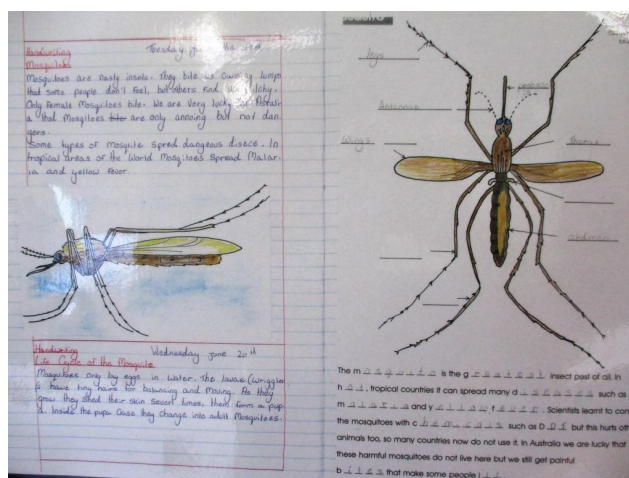 Handwriting
Tuesday June
Mosquitoes
Mosquitoes are nasty insets. They bite us causing lumps
that some people don't feel, but others find very itchy.
Only Female Mosquitoes bite. We are very lucky in
a that Mosqitoes are only annoing but not dan
gers.
Some types of Mosquite spred dangeous disece. In
tropical areas of the World Mosqitoes Spread Malar-
ia and yellow fever.
Handwriting
Wednesday June 20th
Life Cycle of the Mosquite
Mosquitoes only lay eggs in water. The larvae (wriggle
s have tiny hairs for balancing and Moving. As they
grow they shed their skin severl times, them form a pup
a. Inside the pupa Case they change into adult Mosquitoes.
legs
Antennae
Wings
abdomen
The mosquito is the greatest insect pest of all. In
hot, tropical countries it can spread many diseases such as
malaria and yellow fever. Scientists learnt to con
the mosquitoes with chemicals such as DDT but this hurts oth
animals too, so many countries now do not use it. In Australia we are lucky that
these harmful mosquitoes do not live here but we still get painful
bites that make some people ill.